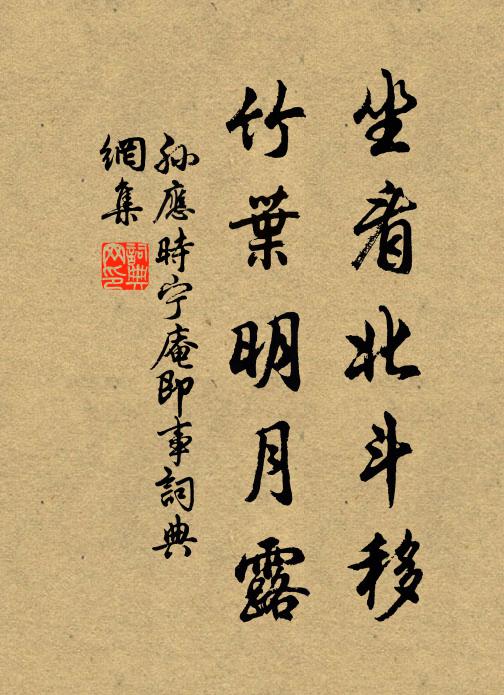 坐看北斗移
竹葉明月露
孫應時宁庵即事詞典
網集
詞典
网印